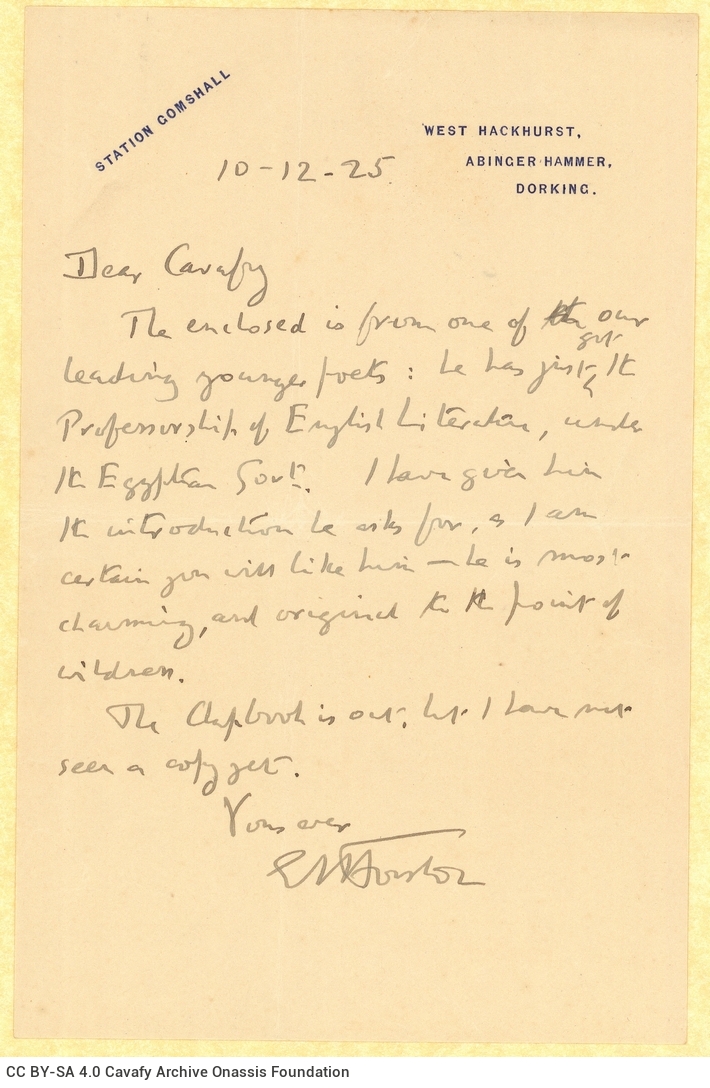 STATION GOMSHALL
WEST HACKHURST,
ABINGER HAMMER,
DORKING.
10-12-25
Dear Cavafy
The enclosed is from one of our
leading younger poets : he has just got the
Professorship of English Literature, under
the Egyptian Govt. I have given him
the introduction he asks for, as I am
certain you will like him — he is most
charming, and original to the point of
wildness.
The Chapbook is out, but I have not
seen a copy yet.
Yours ever
EMForster
CC BY-SA 4.0 Cavafy Archive Onassis Foundation